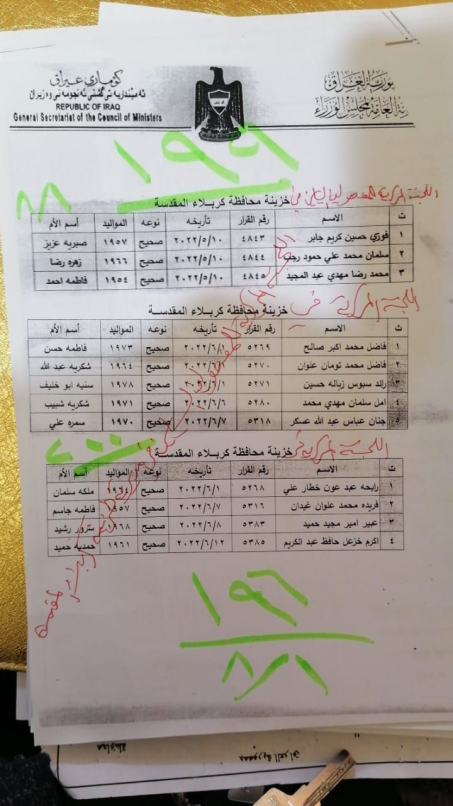 كۆماری عیراق
جمهورية العراق
ئه مینداریه تی گشتی ئه نجومه نی وه زیران
الأمانة العامة لمجلس الوزراء
REPUBLIC OF IRAQ
General Secretariat of the Council of Ministers
١٩٦
٨٨
اللجنة المركزية
خزينة محافظة كربلاء المقدسة
ت الاسم رقم القرار تاريخه نوعه المواليد أسم الأم
١ فوزي حسين كريم جابر ٤٨٤٣ ٢٠٢٢/٥/١٠ صحيح ١٩٥٧ صبريه عزيز
٢ سلمان محمد علي حمود رجب ٤٨٤٤ ٢٠٢٢/٥/١٠ صحيح ١٩٦٦ زهره رضا
٣ محمد رضا مهدي عبد المجيد ٤٨٤٥ ٢٠٢٢/٥/١٠ صحيح ١٩٥٤ فاطمه احمد
اللجنة المركزية في خزينة محافظة كربلاء المقدسة
ت الاسم رقم القرار تاريخه نوعه المواليد أسم الأم
١ فاضل محمد اكبر صالح ٥٢٦٩ ٢٠٢٢/٦/١ صحيح ١٩٧٣ فاطمه حسن
٢ فاضل محمد تومان علوان ٥٢٧٠ صحيح ١٩٦٤ شكريه عبد الله
٣ رائد سبوس زباله حسين ٥٢٧١ صحيح ١٩٧٨ سنيه ابو خليف
٤ امل سلمان مهدي محمد ٥٢٨٠ ٢٠٢٢/٦/٦ صحيح ١٩٧١ شكريه شبيب
٥ جنان عباس عبد الله عسكر ٥٣١٨ ٢٠٢٢/٦/٧ صحيح ١٩٧٠ سمره علي
اللجنة المركزية في خزينة محافظة كربلاء المقدسة
ت الاسم رقم القرار تاريخه نوعه المواليد أسم الأم
١ رابحه عبد عون خطار علي ٥٢٦٨ ٢٠٢٢/٦/١ صحيح ملكه سلمان
٢ فريده محمد علوان غيدان ٥٣١٦ ٢٠٢٢/٦/٧ صحيح فاطمه جاسم
٣ عبير امير مجيد حميد ٥٣٨٣ ٢٠٢٢/٦/٨ صحيح رشيد
٤ اكرم خزعل حافظ عبد الكريم ٥٣٨٥ ٢٠٢٢/٦/١٢ صحيح ١٩٦١ حمديه حميد
١٩٦
٨/١
جمهورية العراق
محافظة